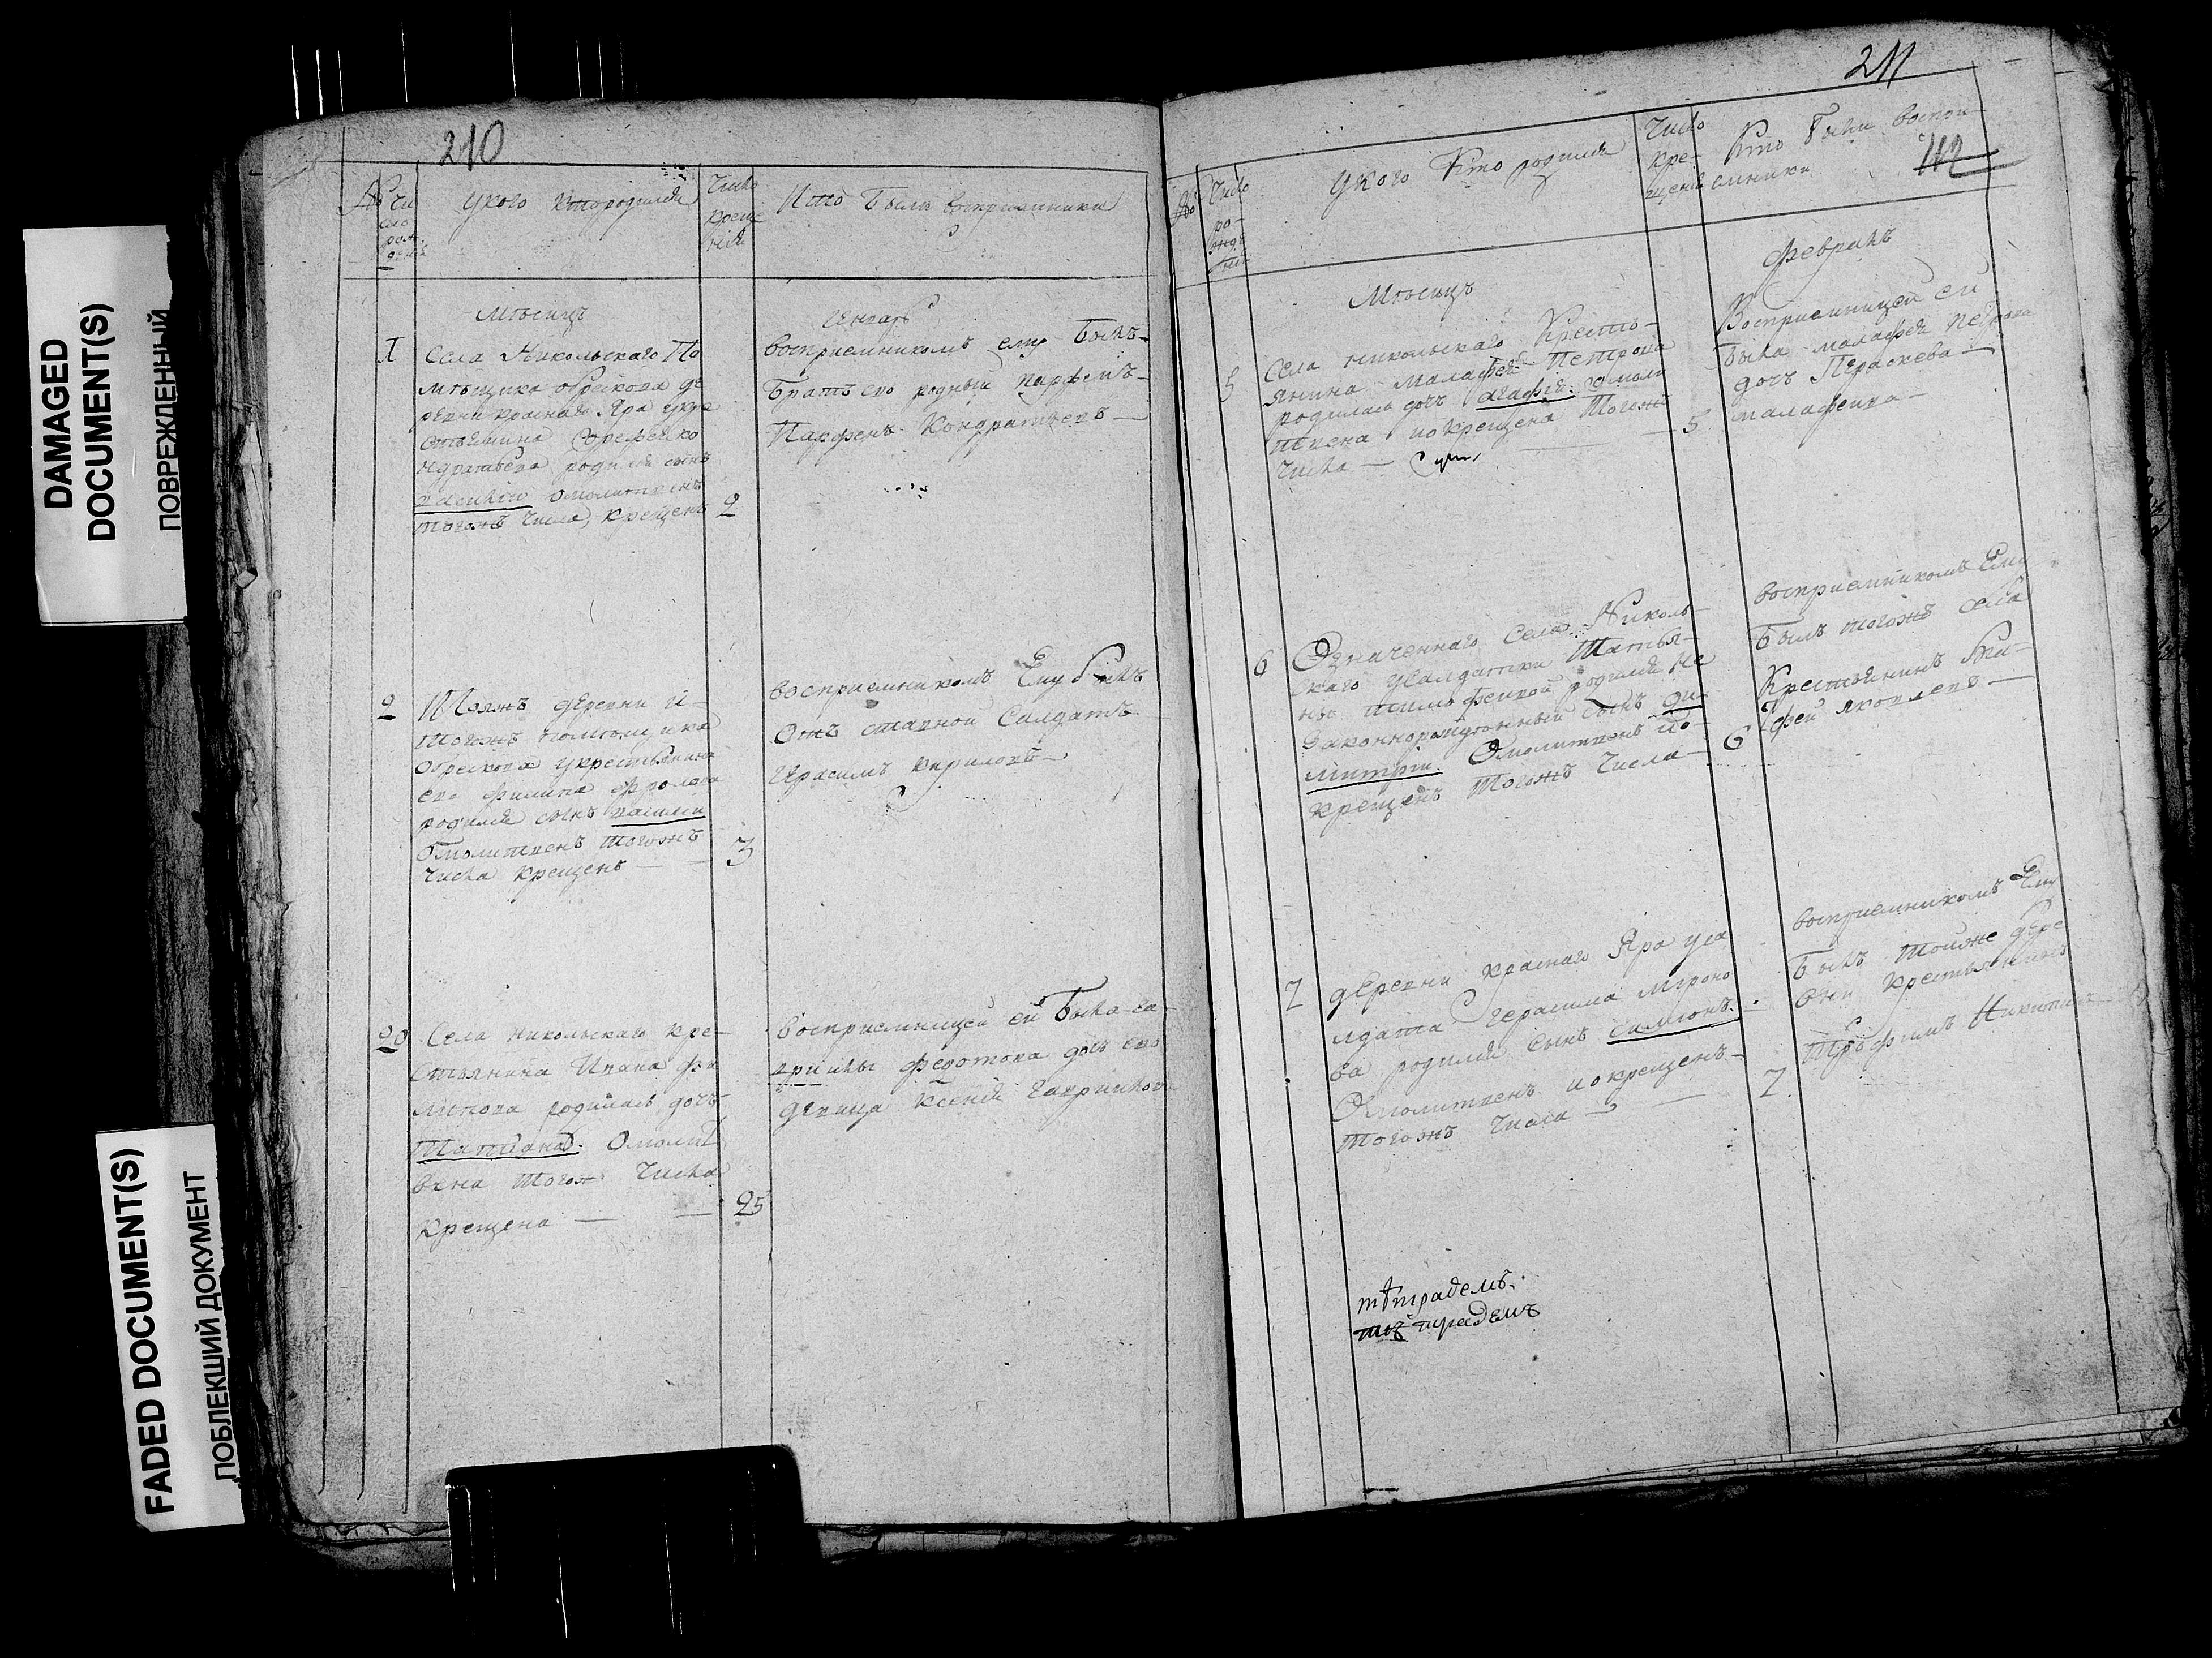 DAMAGED
DOCUMENT(S)
ПОВРЕЖДЕННЫЙ
FADED DOCUMENT(S)
ПОБЛЕКШИЙ ДОКУМЕНТ
210
№ Чи
сло
рож
дения
У кого кто родился
Число
креще
ния
Кто были восприемники
Месяцъ
Генварь
1
Села Никольскаго По
мѣщика Обрескова де
ревни Краснаго Яра укре
стьянина Ко
ндратьева родился сынъ
василій омолитвенъ
тогожъ числа крещенъ
2
восприемникомъ ему былъ
братъ его родный парфенъ
Парфенъ Кондратьевъ
2
Тояжъ деревни и
тогожъ помѣщика
Обрескова укрестьянина
его филипа фролова
родился сынъ василии
Омолитвенъ тогожъ
числа крещенъ
3
восприемникомъ Ему былъ
отъ ставной Салдатъ
Герасимъ кириловъ
20
Села никольскаго кре-
стьянина Ивана фи
липова родилась дочь
Татиана. Омолит
вена тогож числа
крещена
25
Восприемницей ей была га
врилы федотова дочь его
девица ксения гаврилова
211
112
№
Число
ро
жде
ния
У кого Кто родился
Число
кре-
щения
Кто были воспри
емники
Месяцъ
Февраль
5
Села никольскаго Кресть-
янина малафея Петрова
родилась дочь агафія. Омоли
твена и окрещена тогожъ
числа
5
Восприемницей ей
была малафея петрова
дочь Параскева
малафеива
6
Означеннаго Села Николь-
скаго усалдатки Татья-
ны тимофеивой родился не
законнорожденный сынъ ди-
митрій Омолитвенъ и о-
крещенъ тогожъ числа
6
восприемникомъ Ему
былъ тогожъ села
Крестьянинъ
фей яковлевъ
7
деревни краснаго Яра уса
лдата Герасима мироно
ва родился сынъ симионъ.
Омолитвенъ и окрещенъ
тогожъ числа
7.
восприемникомъ Ему
былъ тойже дере
вни крестьянинъ
Трофимъ Никитинъ